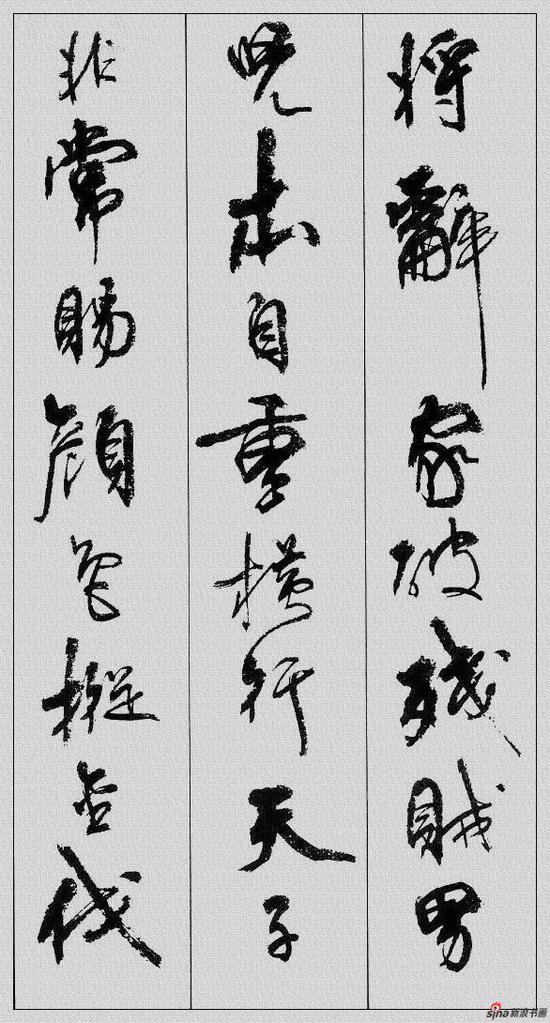 将辭家破殘賊男
兒本自重橫行天子
非常賜顏色摐金伐
sina新浪书画